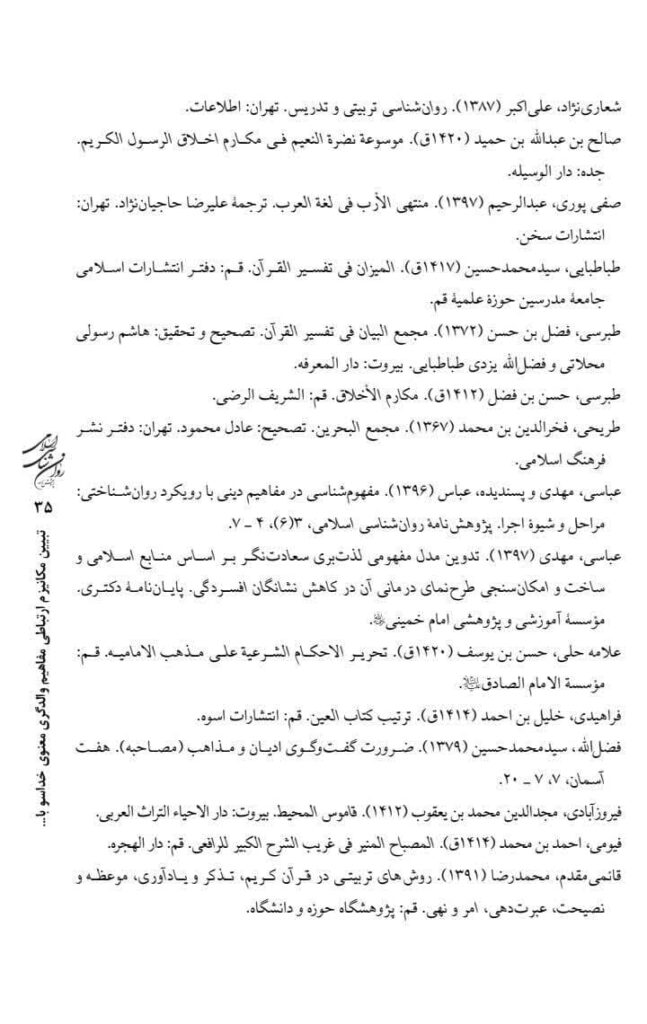 شعاری‌نژاد، علی‌اکبر (۱۳۸۷). روان‌شناسی تربیتی و تدریس. تهران: اطلاعات.
صالح بن عبدالله بن حمید (۱۴۲۰ق). موسوعة نضرة النعیم فی مکارم اخلاق الرسول الکریم.
جده: دار الوسیله.
صفی پوری، عبدالرحیم (۱۳۹۷). منتهی الأرب فی لغة العرب. ترجمهٔ علیرضا حاجیان‌نژاد. تهران:
انتشارات سخن.
طباطبایی، سیدمحمدحسین (۱۴۱۷ق). المیزان فی تفسیر القرآن. قم: دفتر انتشارات اسلامی
جامعهٔ مدرسین حوزهٔ علمیهٔ قم.
طبرسی، فضل بن حسن (۱۳۷۲). مجمع البیان فی تفسیر القرآن. تصحیح و تحقیق: هاشم رسولی
محلاتی و فضل‌الله یزدی طباطبایی. بیروت: دار المعرفه.
طبرسی، حسن بن فضل (۱۴۱۲ق). مکارم الأخلاق. قم: الشریف الرضی.
طریحی، فخرالدین بن محمد (۱۳۶۷). مجمع البحرین. تصحیح: عادل محمود. تهران: دفتر نشر
فرهنگ اسلامی.
عباسی، مهدی و پسندیده، عباس (۱۳۹۶). مفهوم‌شناسی در مفاهیم دینی با رویکرد روان‌شناختی:
مراحل و شیوهٔ اجرا. پژوهش‌نامهٔ روان‌شناسی اسلامی، ۳(۶)، ۴ – ۷.
عباسی، مهدی (۱۳۹۷). تدوین مدل مفهومی لذت‌بری سعادت‌نگر بر اساس منابع اسلامی و
ساخت و امکان‌سنجی طرح‌نمای درمانی آن در کاهش نشانگان افسردگی. پایان‌نامهٔ دکتری.
مؤسسهٔ آموزشی و پژوهشی امام خمینی.
علامه حلی، حسن بن یوسف (۱۴۲۰ق). تحریر الاحکام الشرعیة علی مذهب الامامیه. قم:
مؤسسة الامام الصادق.
فراهیدی، خلیل بن احمد (۱۴۱۴ق). ترتیب کتاب العین. قم: انتشارات اسوه.
فضل‌الله، سیدمحمدحسین (۱۳۷۹). ضرورت گفت‌وگوی ادیان و مذاهب (مصاحبه). هفت
آسمان، ۷، ۷ – ۲۰.
فیروزآبادی، مجدالدین محمد بن یعقوب (۱۴۱۲). قاموس المحیط. بیروت: دار الاحیاء التراث العربی.
فیومی، احمد بن محمد (۱۴۱۴ق). المصباح المنیر فی غریب الشرح الکبیر للرافعی. قم: دار الهجره.
قائمی‌مقدم، محمدرضا (۱۳۹۱). روش‌های تربیتی در قرآن کریم، تذکر و یادآوری، موعظه و
نصیحت، عبرت‌دهی، امر و نهی. قم: پژوهشگاه حوزه و دانشگاه.
روان‌شناسی اسلامی
۳۵
تبیین مکانیزم ارتباطی مفاهیم والدگری معنوی خداسو با...